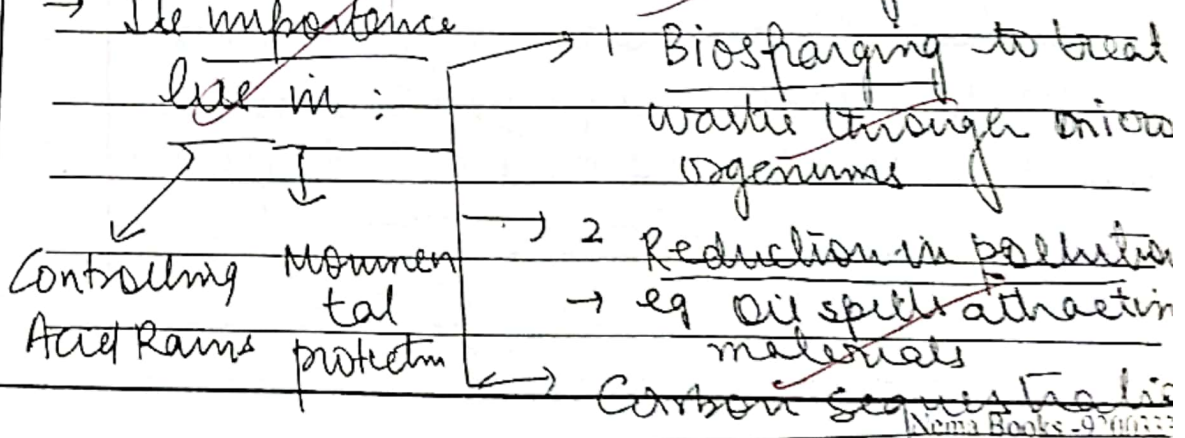 → Its importance
lies in :
Controlling
Acid Rains
Monumen
tal
protectn
→ 1 Biosparging to treat
waste through micro
orgenisms
→ 2 Reduction in pollution
→ eg Oil spills attractin
materials
→ Carbon sequestratio
Nema Books -9